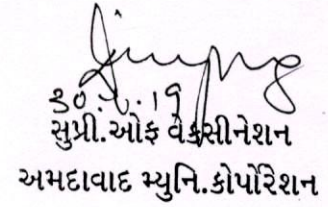 સુપ્રી.ઓફ વેક્સીનેશન
અમદાવાદ મ્યુનિ.કોર્પોરેશન